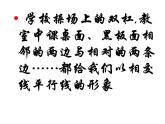 • 学校操场上的双杠，教
室中课桌面、黑板面相
邻的两边与相对的两条
边……都给我们以相交
线平行线的形象